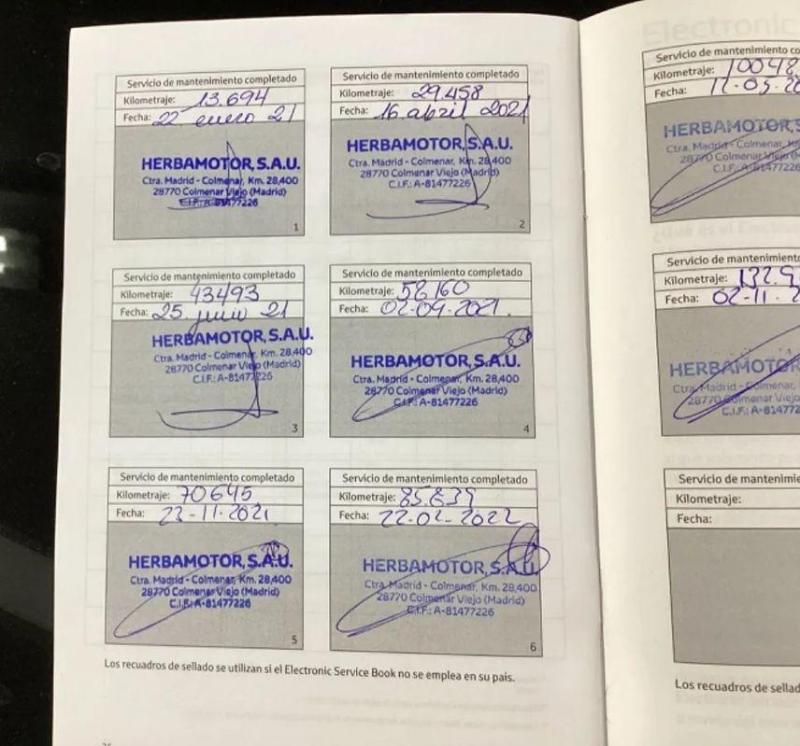 Servicio de mantenimiento completado
Kilometraje: 13.694
Fecha: 22 enero 21
HERBAMOTOR, S.A.U.
Ctra. Madrid - Colmenar, Km. 28,400
28770 Colmenar Viejo (Madrid)
C.I.F.: A-81477226
1
Servicio de mantenimiento completado
Kilometraje: 29.458
Fecha: 16 abril 2021
HERBAMOTOR, S.A.U.
Ctra. Madrid - Colmenar, Km. 28,400
28770 Colmenar Viejo (Madrid)
C.I.F.: A-81477226
2
Servicio de mantenimiento completado
Kilometraje: 43493
Fecha: 25 junio 21
HERBAMOTOR, S.A.U.
Ctra. Madrid - Colmenar, Km. 28,400
28770 Colmenar Viejo (Madrid)
C.I.F.: A-81477226
3
Servicio de mantenimiento completado
Kilometraje: 58160
Fecha: 02-09-2021.
HERBAMOTOR, S.A.U.
Ctra. Madrid - Colmenar, Km. 28,400
28770 Colmenar Viejo (Madrid)
C.I.F.: A-81477226
4
Servicio de mantenimiento completado
Kilometraje: 70645
Fecha: 23-11-2021
HERBAMOTOR, S.A.U.
Ctra. Madrid - Colmenar, Km. 28,400
28770 Colmenar Viejo (Madrid)
C.I.F.: A-81477226
5
Servicio de mantenimiento completado
Kilometraje: 85.839
Fecha: 22-02-2022
HERBAMOTOR, S.A.U.
Ctra. Madrid - Colmenar, Km. 28,400
28770 Colmenar Viejo (Madrid)
C.I.F.: A-81477226
6
Los recuadros de sellado se utilizan si el Electronic Service Book no se emplea en su país.
Electronic
Servicio de mantenimiento co
Kilometraje: 10048
Fecha: 12-05-20
HERBAMOTOR, S
Ctra. Madrid - Colmenar, K
28770 Colmenar Viejo
C.I.F.: A-81477
Servicio de mantenimiento
Kilometraje: 132.9
Fecha: 02-11-2
HERBAMOTOR
Ctra. Madrid - Colmenar,
28770 Colmenar Viejo
C.I.F.: A-81477
Servicio de mantenimie
Kilometraje:
Fecha:
Los recuadros de sellad